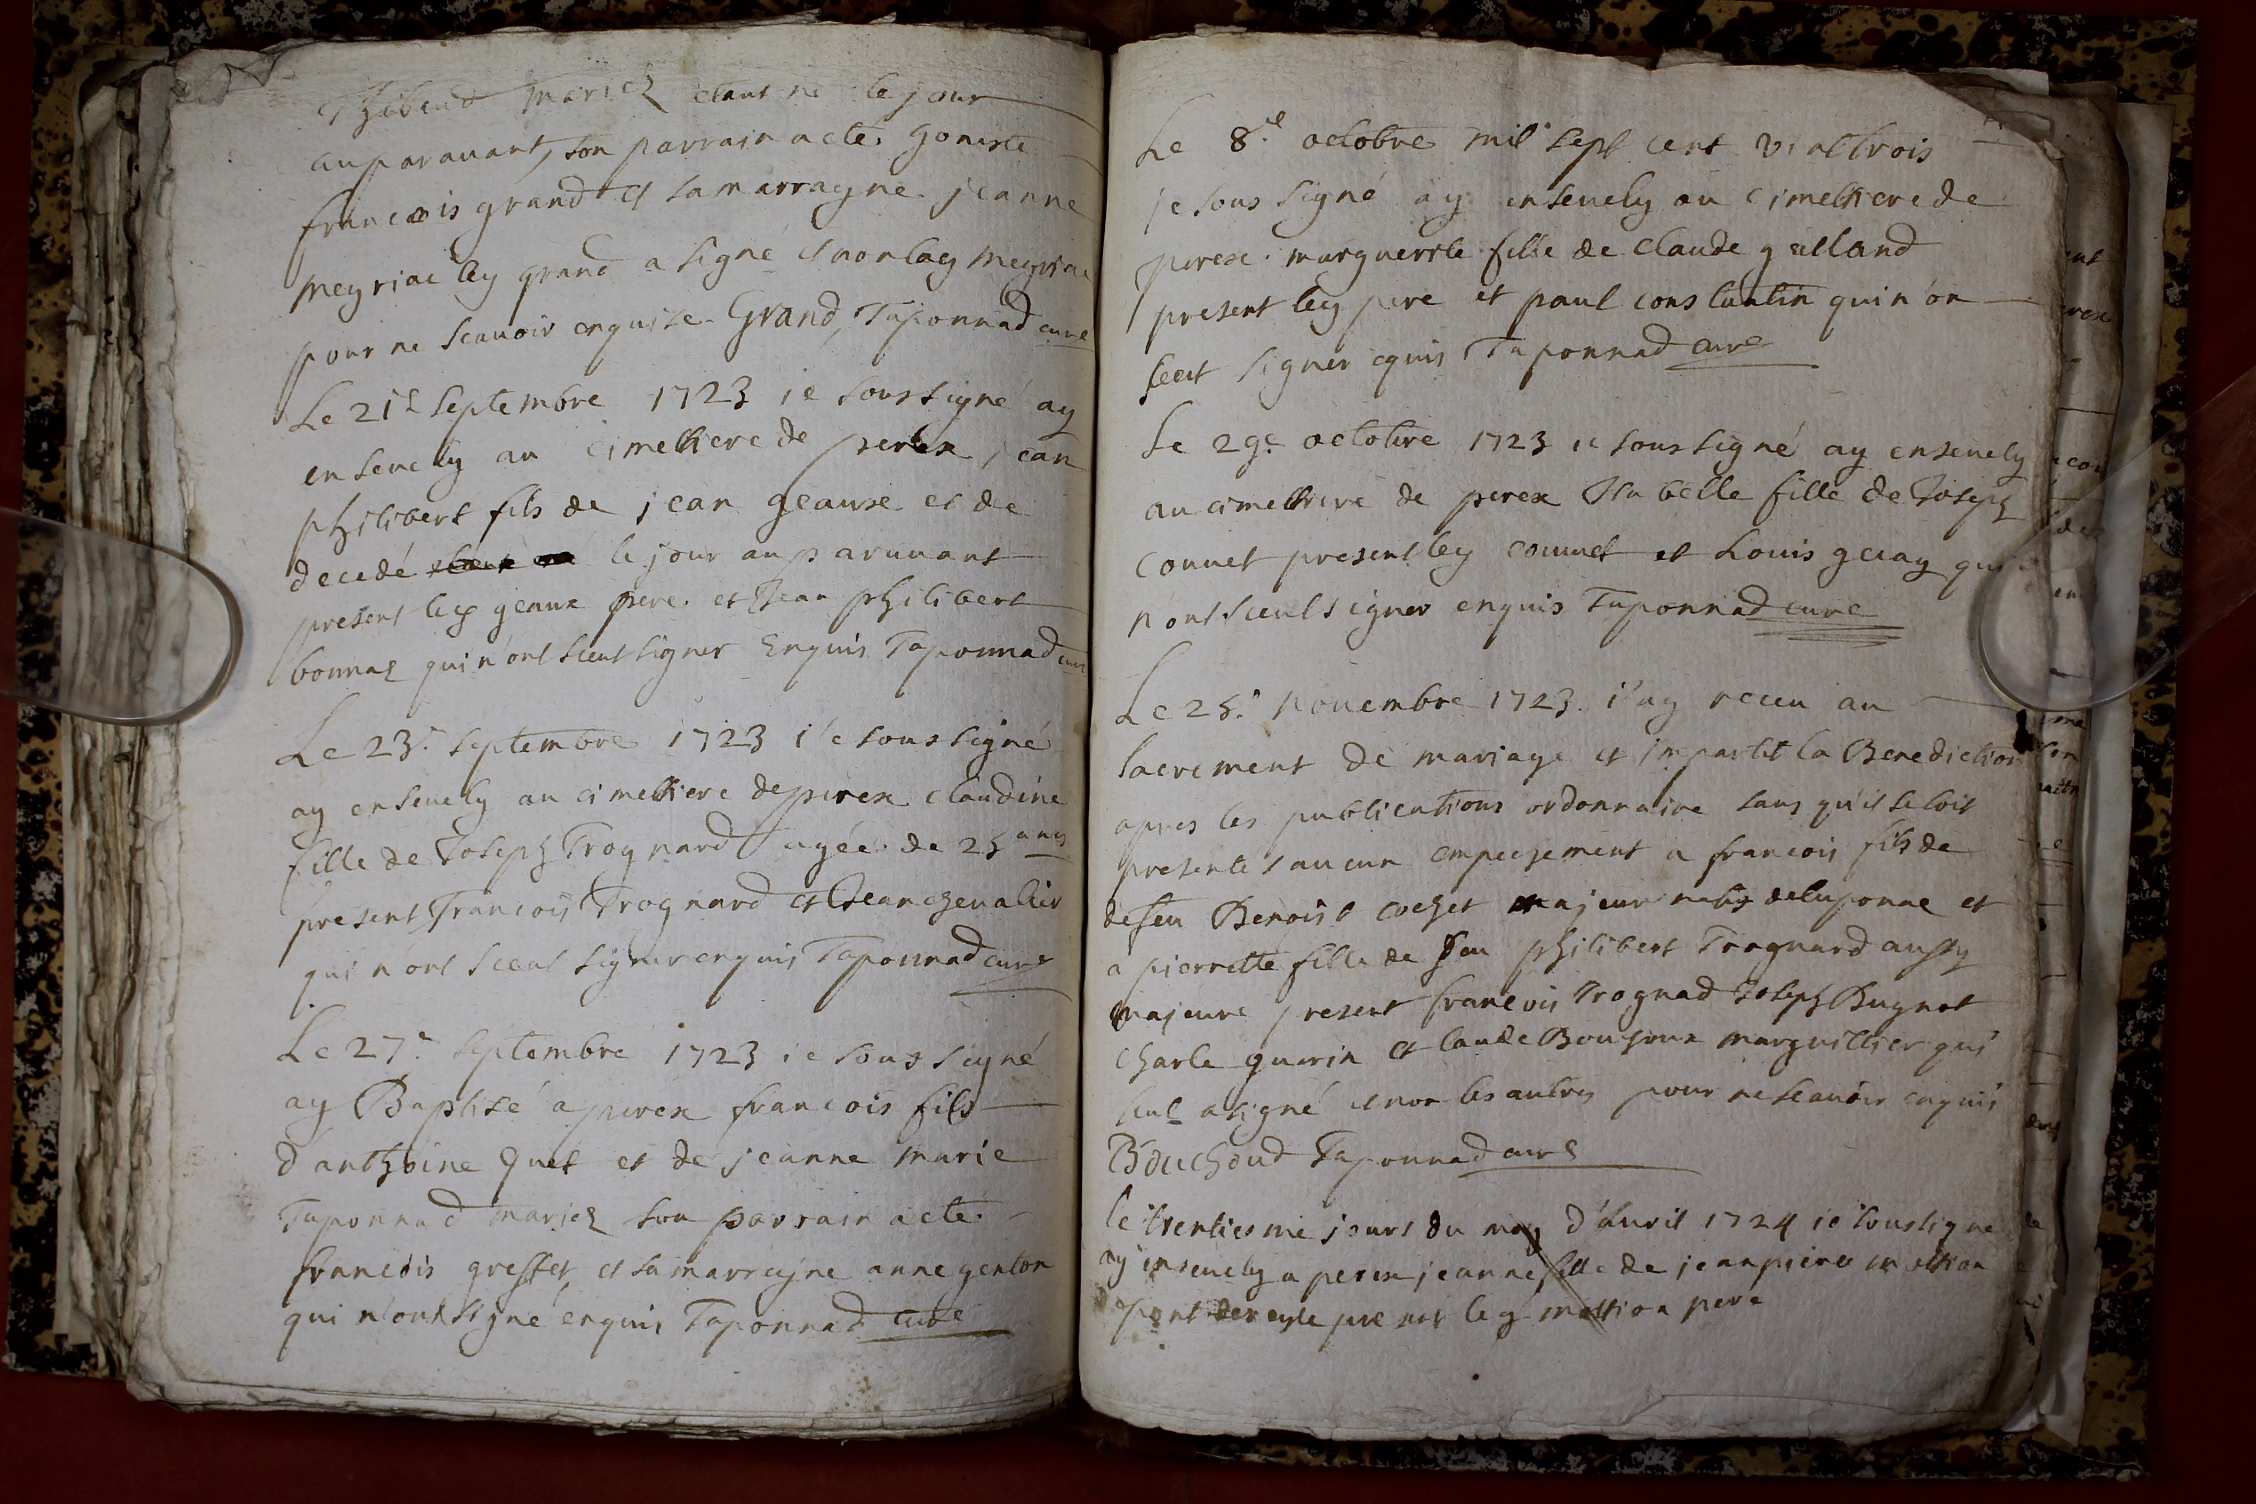 Thibaud mariez etant ne le jour
auparavant, son parrain acté honeste
francois grand et sa marragne jeanne
meyriac ley grand a signé et non lad meyriac
pour ne scavoir enquise. Grand, Taponnad curé
Le 21e septembre 1723 ie soussigné ay
ensevely au cimettiere de perex jean
philibert fils de jean geaune et de
decedé le jour auparavant
present ley geaune pere. et Jean philibert
bonnaz qui n'ont sceut signer Enquis Taponnad curé
Le 23e septembre 1723 ie soussigné
ay ensevely au cimettiere de perex claudine
fille de Joseph Trognard agée de 25 ans
present francois Trognard et Jean chevallier
qui n'ont sceut signer enquis Taponnad curé
Le 27e septembre 1723 ie soussigné
ay Baptisé a perex francois fils
d'anthoine Quet et de jeanne marie
Taponnad mariez son parrain acté
francois greffet et sa marragne anne genton
qui n'ont signé enquis Taponnad curé
Le 8e octobre mil sept cent vint trois
je soussigné ay ensevely au cimettiere de
perex marguerite fille de claude gulland
present ley pere et paul constantin qui n'on
sceut signer equis Taponnad curé
Le 29e octobre 1723 ie soussigné ay ensevely
au cimettiere de perex Isabelle fille de Joseph
connet present ley connet et Louis geray qui
n'ont sceut signer enquis Taponnad curé
Le 25e novembre 1723 i'ay receu au
sacrement de mariage et impartit la Benediction
apres les publications ordonnaire sans qu'il se soit
presentés aucun empechement a francois fils de
defeu Benoist cochet majeur de luponne et
a pierrette fille de feu philibert Trognard aussy
majeure present francois Trognad Joseph Bugnot
charle guerin et claude Bouchoux marguillier qui
seul a signé et non les autres pour ne scavoir enquis
Bouchoud Taponnad curé
le trentiesme jours du moy d'avril 1724 ie soussigne
ay ensevely a perex jeanne fille de jean piere mottion
pont de veyle present ley mottion pere